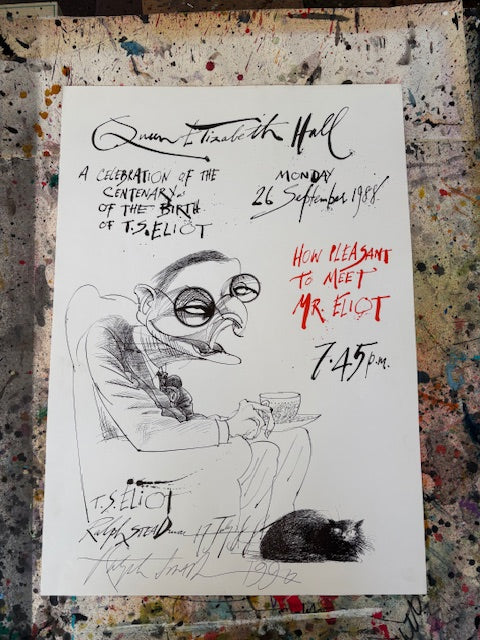 Queen Elizabeth Hall
A CELEBRATION OF THE
CENTENARY
OF THE BIRTH
OF T.S. ELIOT
MONDAY
26 September 1988
HOW PLEASANT
TO MEET
MR. ELIOT
7.45 p.m.
T.S. ELIOT
Ralph STEADman
Ralph Steadman